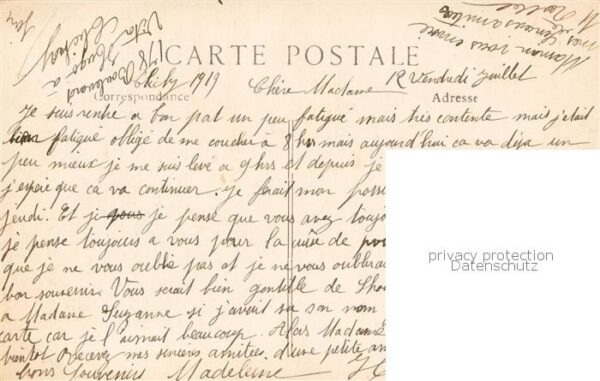 CARTE POSTALE
Correspondance
Adresse
178 Boulevard
Victor Hugo à
Clichy
Maman vous envoie
mes
amitiés
Clichy 1919 Chère Madame 12 Vendredi Juillet
Je suis rentré a bon pat un peu fatigué mais très contente mais j'était
bien fatigué obligé de me coucher à 8 hrs mais aujourd'hui ca va deja un
peu mieux je me suis levé a 9 hrs et depuis je
j'espère que ca va continuer. je ferait mon poss
jeudi. Et je je pense que vous avez toujou
je pense toujours a vous pour la de
que je ne vous oublie pas et je ne vous oublierai
bon souvenir. Vous serait bien gentille de
a Madame Suzanne si j'avait su son nom
carte car je l'aimait beaucoup. Alors Madame
bientot Recevez mes sincères amitiées d'une petite am
bons Souvenirs Madeleine
privacy protection
Datenschutz